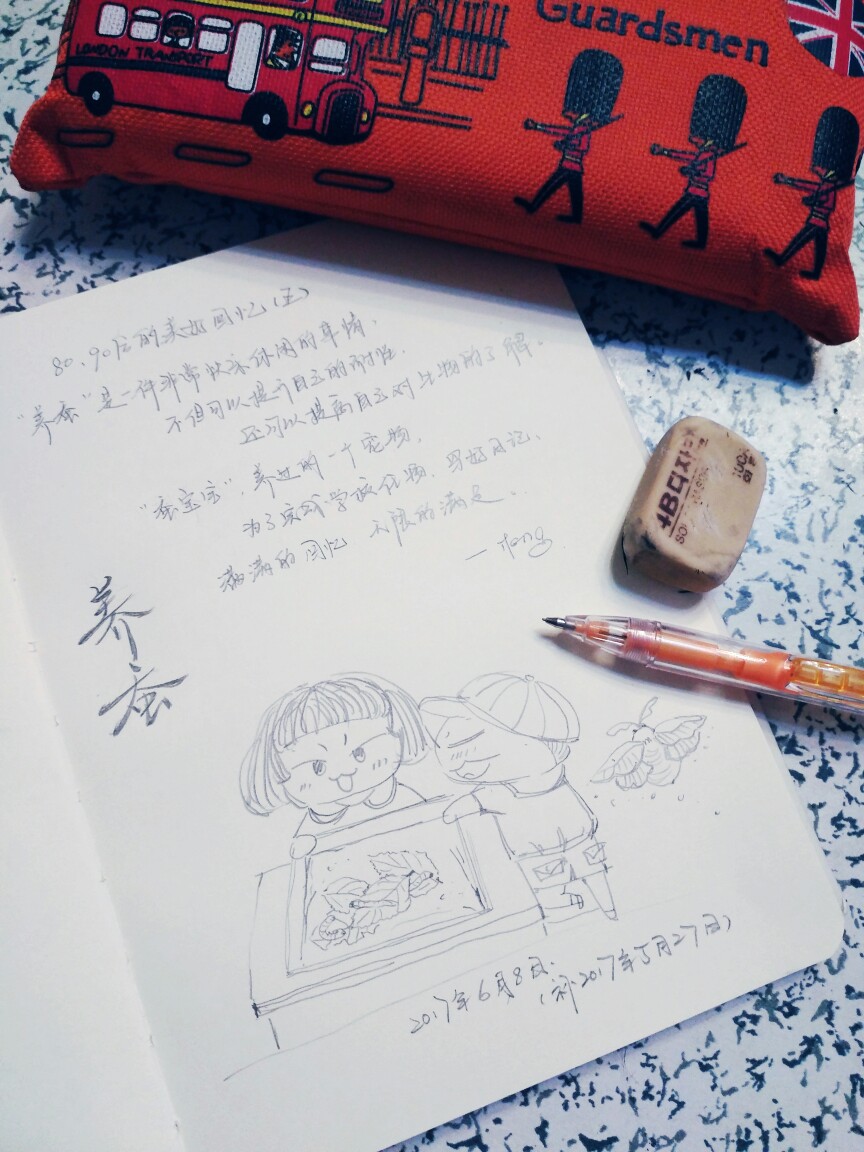 Guardsmen
LONDON TRANSPORT
80、90后的美好回忆（五）
“养蚕”是一件非常快乐休闲的事情，
不但可以提升自己的耐性，
还可以提高自己对生物的了解。
“蚕宝宝”，养过的一个宠物，
为了完成学校任务，写好日记、
满满的回忆 无限的满足。
养
蚕
4B
2017年6月8日
2017年5月27日）